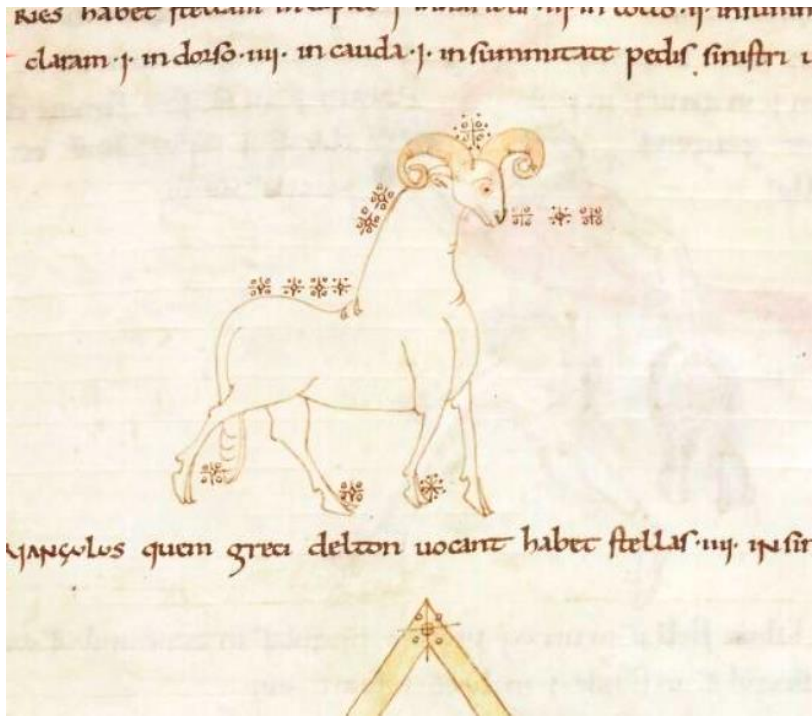 ries habet stellam in capite ·j· in naribus ·iij· in collo ·ij· in summi
claram ·j· in dorso ·iiij· in cauda ·j· in summitate pedis sinistri
riangolos quem greci delton uocant habet stellas ·iiij· in sin